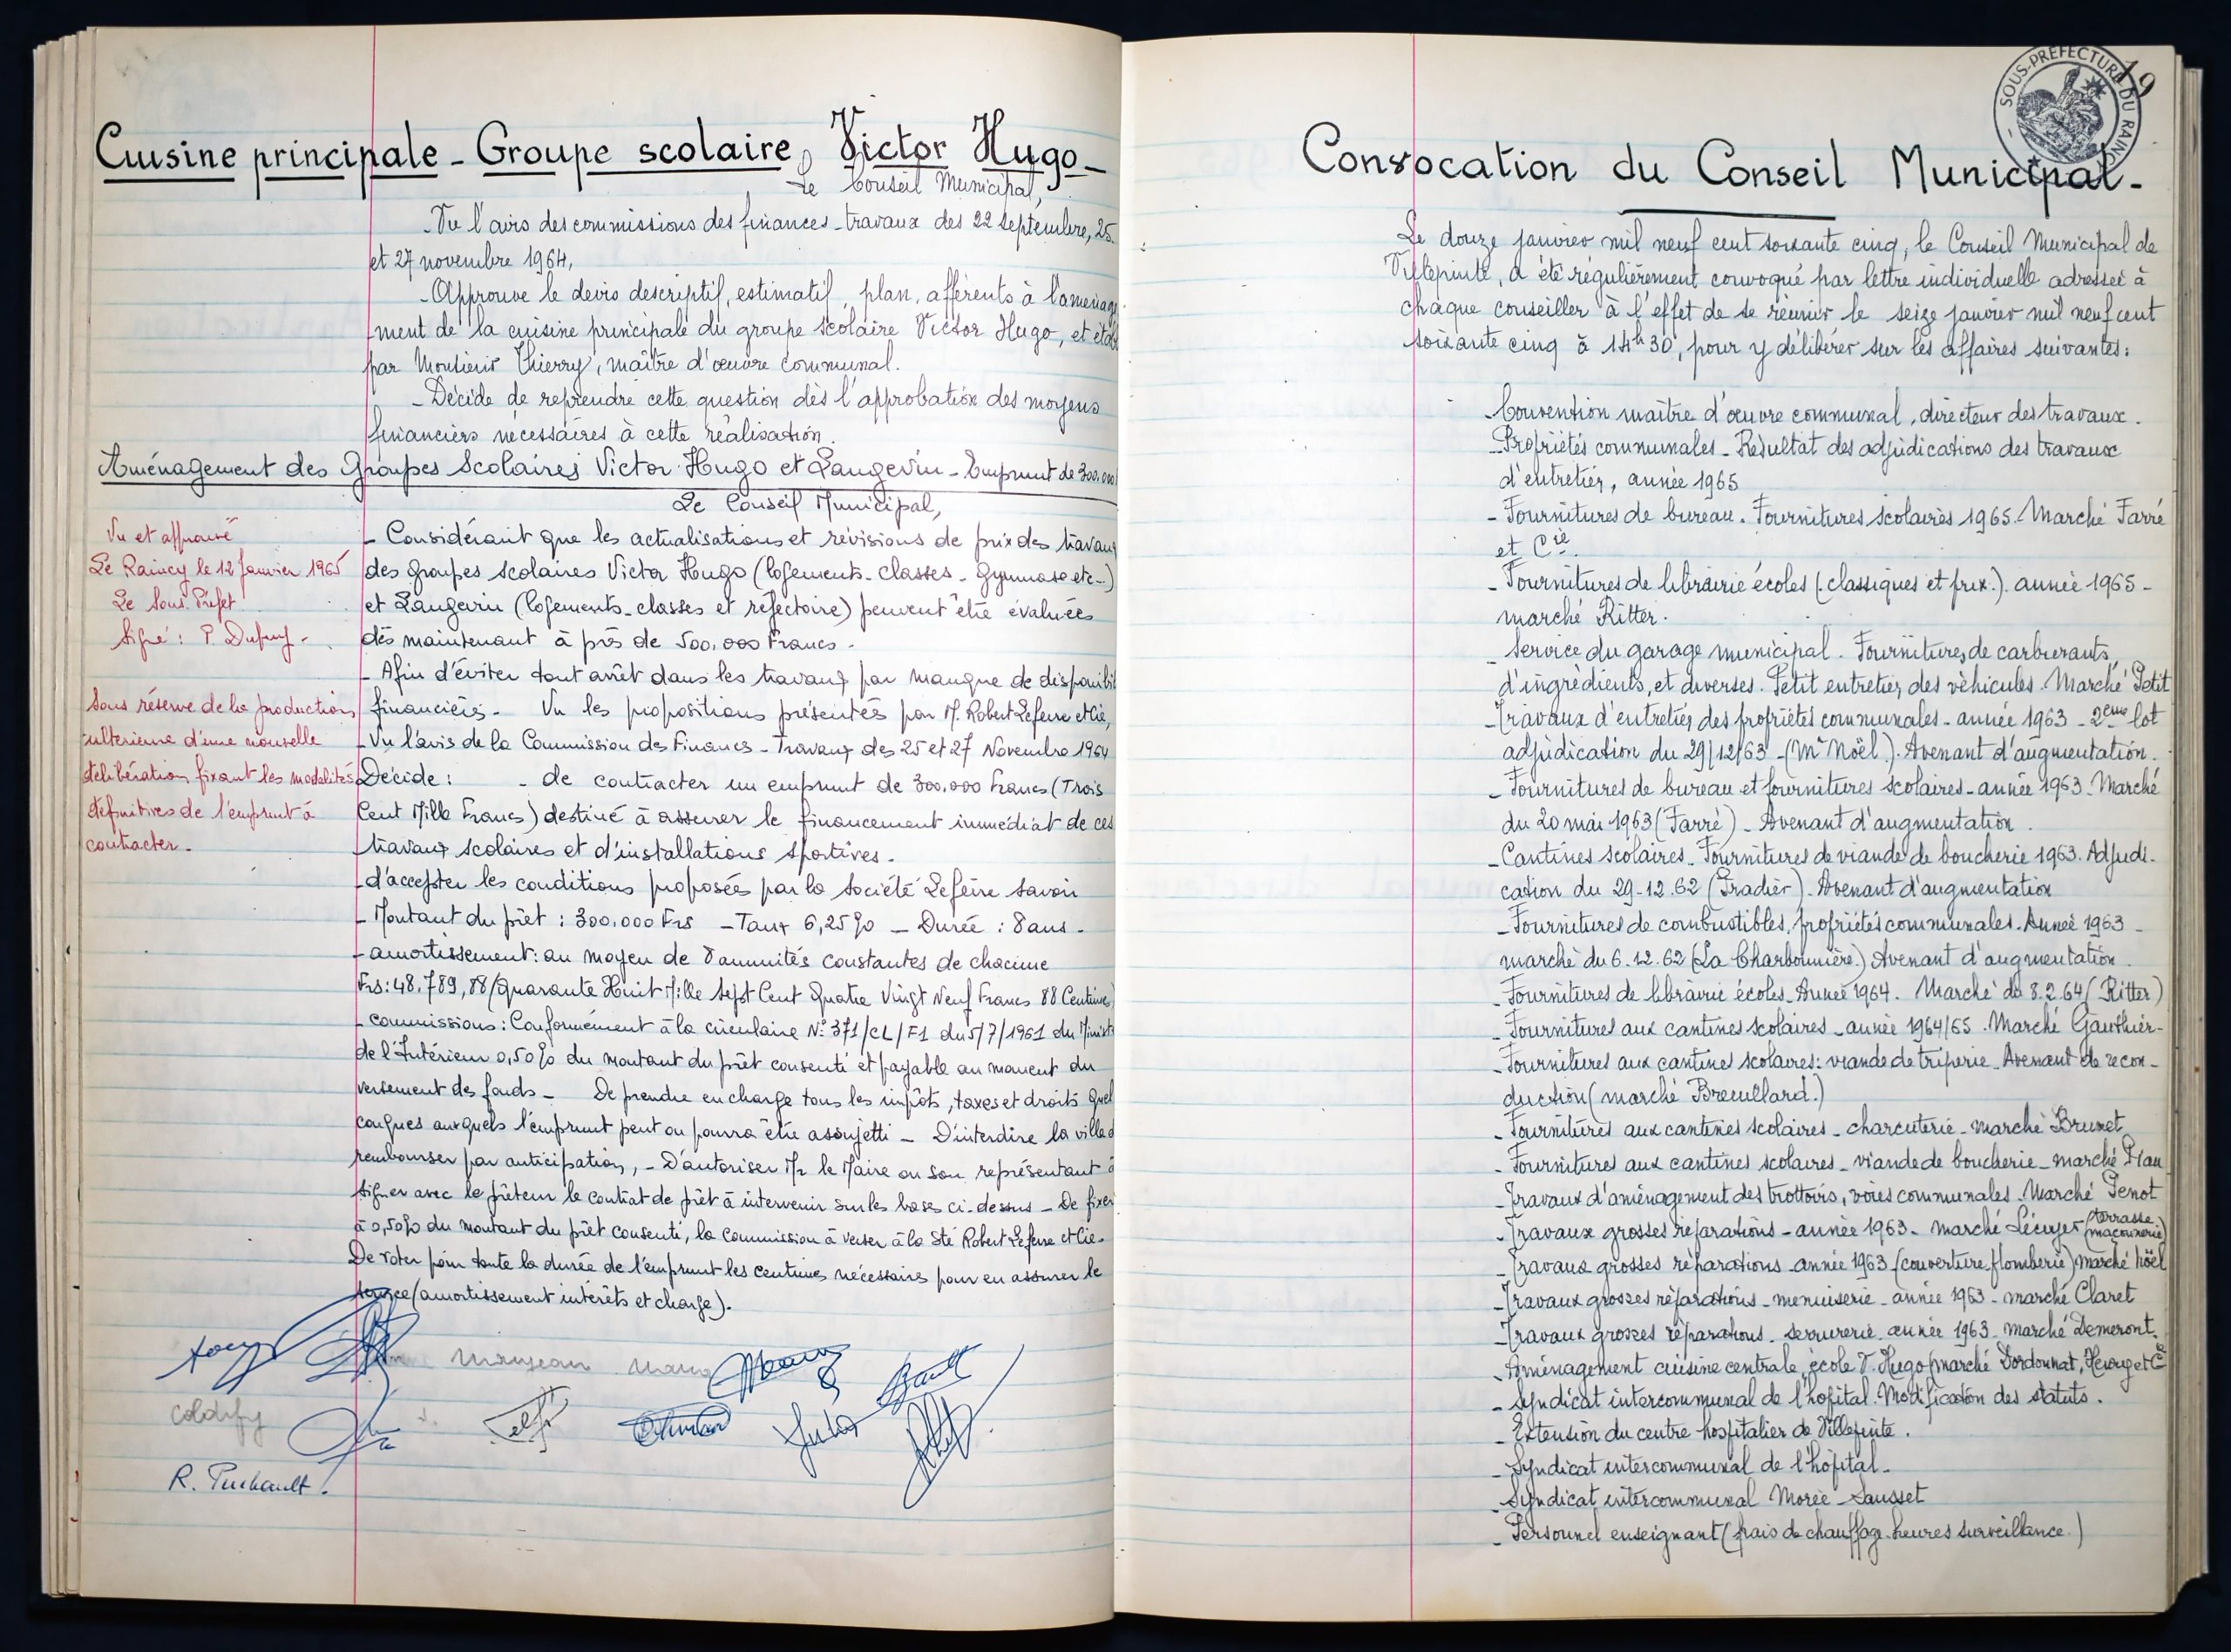 Cuisine principale - Groupe scolaire, Victor Hugo -
Le Conseil Municipal,
- Vu l'avis des commissions des finances - travaux des 22 septembre, 25
et 27 novembre 1964,
- Approuve le devis descriptif, estimatif, plan, afférents à l'aménage
ment de la cuisine principale du groupe scolaire Victor Hugo, et établ
par Monsieur Thierry, maître d'œuvre communal.
- Décide de reprendre cette question dès l'approbation des moyens
financiers nécessaires à cette réalisation.
Aménagement des Groupes Scolaires Victor Hugo et Langevin - Emprunt de 300.000
Le Conseil Municipal,
- Considérant que les actualisations et révisions de prix des travaux
des groupes scolaires Victor Hugo (logements - classes - gymnase etc..)
et Langevin (logements - classes et réfectoire) peuvent être évaluées
dès maintenant à près de 500.000 Francs -
- Afin d'éviter tout arrêt dans les travaux par manque de disponibil
financières - Vu les propositions présentées par M. Robert Lefevre et Cie,
- Vu l'avis de la Commission des Finances - Travaux des 25 et 27 Novembre 1964
Décide : - de contracter un emprunt de 300.000 Francs (Trois
Cent Mille Francs) destiné à assurer le financement immédiat de ces
travaux scolaires et d'installations sportives -
- d'accepter les conditions proposées par la Société Lefèvre savoir
- Montant du prêt : 300.000 Frs - Taux 6,25% - Durée : 8 ans -
- amortissement : au moyen de 8 annuités constantes de chacune
Frs : 48.789,88 (Quarante Huit Mille Sept Cent Quatre Vingt Neuf Francs 88 Centimes)
- commissions : Conformément à la circulaire N° 371/CL/F1 du 5/7/1961 du Minist
de l'Intérieur 0,50% du montant du prêt consenti et payable au moment du
versement des fonds - De prendre en charge tous les impôts, taxes et droits quel
conques auxquels l'emprunt peut ou pourra être assujetti - D'interdire la ville d
rembourser par anticipation, - D'autoriser Mr le Maire ou son représentant à
signer avec le prêteur le contrat de prêt à intervenir sur les bases ci-dessus - De fixer
à 0,50% du montant du prêt consenti, la Commission à verser à la Sté Robert Lefevre et Cie -
De voter pour toute la durée de l'emprunt les centimes nécessaires pour en assurer le
service (amortissement intérêts et charge).
Vu et approuvé
Le Raincy le 12 Janvier 1965
Le Sous-Préfet
Signé : P. Dupuy -
Sous réserve de la production
ultérieure d'une nouvelle
délibération fixant les modalités
définitives de l'emprunt à
contracter -
Manjean
R. Tuchault.
SOUS-PREFECTURE DU RAINCY
19
Convocation du Conseil Municipal -
Le douze janvier mil neuf cent soixante cinq, le Conseil Municipal de
Villepinte, a été régulièrement convoqué par lettre individuelle adressée à
chaque conseiller à l'effet de se réunir le seize janvier mil neuf cent
soixante cinq à 14h30, pour y délibérer sur les affaires suivantes :
- Convention maître d'œuvre communal, directeur des travaux.
- Propriétés communales - Résultat des adjudications des travaux
d'entretien, année 1965
- Fournitures de bureau. Fournitures scolaires 1965. Marché Farré
et Cie.
- Fournitures de librairie écoles (classiques et prix.). année 1965 -
marché Ritter.
- Service du garage municipal. Fournitures de carburants,
d'ingrédients, et diverses. Petit entretien des véhicules. Marché Petit
- Travaux d'entretien des propriétés communales - année 1963 - 2ème lot
adjudication du 29/12/63 - (Mr Noël). Avenant d'augmentation.
- Fournitures de bureau et fournitures scolaires - année 1963. Marché
du 20 mai 1963 (Farré) - Avenant d'augmentation.
- Cantines scolaires - Fournitures de viande de boucherie 1963. Adjudi-
cation du 29-12.62 (Pradier). Avenant d'augmentation
- Fournitures de combustibles, propriétés communales. Année 1963 -
marché du 6.12.62 (La Charbonnière.) Avenant d'augmentation.
- Fournitures de librairie écoles. Année 1964. Marché du 8.2.64 (Ritter)
- Fournitures aux cantines scolaires - année 1964/65. Marché Gauthier -
- Fournitures aux cantines scolaires : viande de triperie. Avenant de recon-
duction (marché Breuillard.)
- Fournitures aux cantines scolaires - charcuterie - marché Brunet
- Fournitures aux cantines scolaires - viande de boucherie - marché
- Travaux d'aménagement des trottoirs, voies communales. Marché Penot
- Travaux grosses réparations - année 1963 - marché Lécuyer (terrasse. maçonnerie)
- Travaux grosses réparations - année 1963 - (couverture, plomberie) marché Noël
- Travaux grosses réparations - menuiserie - année 1963 - marché Claret
- Travaux grosses réparations. serrurerie - année 1963. marché Demeront.
- Aménagement cuisine centrale, école V. Hugo (marché Dordonnat, et Cie
- Syndicat intercommunal de l'hôpital. Modification des statuts.
- Extension du centre hospitalier de Villepinte.
- Syndicat intercommunal de l'hôpital -
- Syndicat intercommunal Morée - Sausset
- Personnel enseignant (frais de chauffage - heures surveillance.)